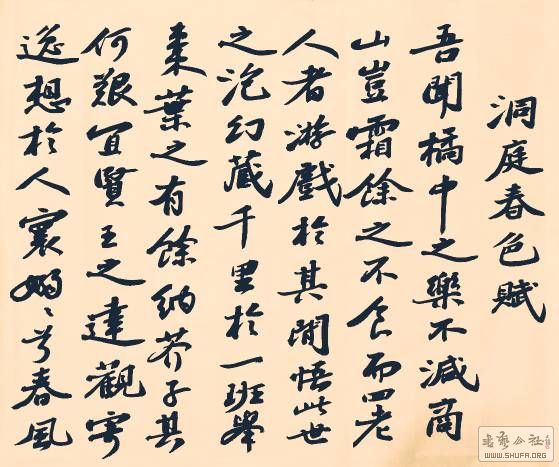 洞庭春色賦
吾聞橘中之樂不減商
山豈霜餘之不食而四老
人者游戲於其間悟此世
之泡幻藏千里於一班舉
棗葉之有餘納芥子其
何艱宜賢王之達觀寄
逸想於人寰嫋〻兮春風
WWW.SHUFA.ORG